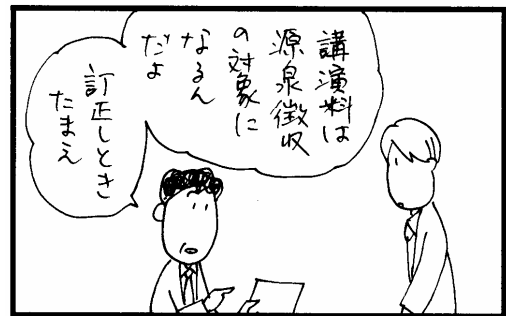 講演料は
源泉徴収
の対象に
なるん
だよ
訂正しとき
たまえ